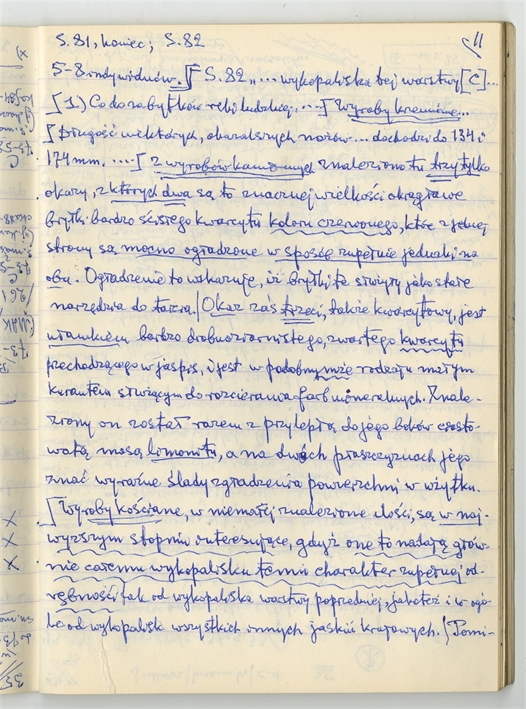 11
S. 81, koniec; S. 82
5-8 indywiduów. [ S. 82 „... wykopaliska tej warstwy [C] ...
[1.) Co do zabytków ręki ludzkiej, ... [ Wyroby krzemienne...
[ Długość niektórych, okazalszych nożów ... dochodzi do 134 i
174 mm. .... [ Z wyrobów kamiennych znaleziono tu trzy tylko
okazy, z których dwa są to znacznej wielkości okrągławe
bryłki bardzo ścisłego kwarcytu koloru czerwonego, które z jednej
strony są mocno ogładzone w sposób zupełnie jednaki na
obu. Ogładzenie to wskazuje, iż bryłki te służyły jako stałe
narzędzia do tarcia. / Okaz zaś trzeci, także kwarcytowy, jest
ułamkiem bardzo drobnoziarnistego, zwartego kwarcytu
przechodzącego w jaspis, i jest w podobnym rodzaju małym
kurantem służącym do rozcierania farb mineralnych. Znale-
ziony on został razem z przylepłą do jego boków
watą masą limonitu, a na dwóch płaszczyznach jego
znać wyraźne ślady zgładzenia powierzchni w użytku.
[ Wyroby kościane, w niemałej znalezione ilości, są w naj-
wyższym stopniu interesujące, gdyż one to nadają głów-
nie całemu wykopalisku temu charakter zupełnej od-
rębności tak od wykopaliska warstwy poprzedniej, jak też i w ogó-
le od wykopalisk wszystkich innych jaskiń krajowych. / Pomi-